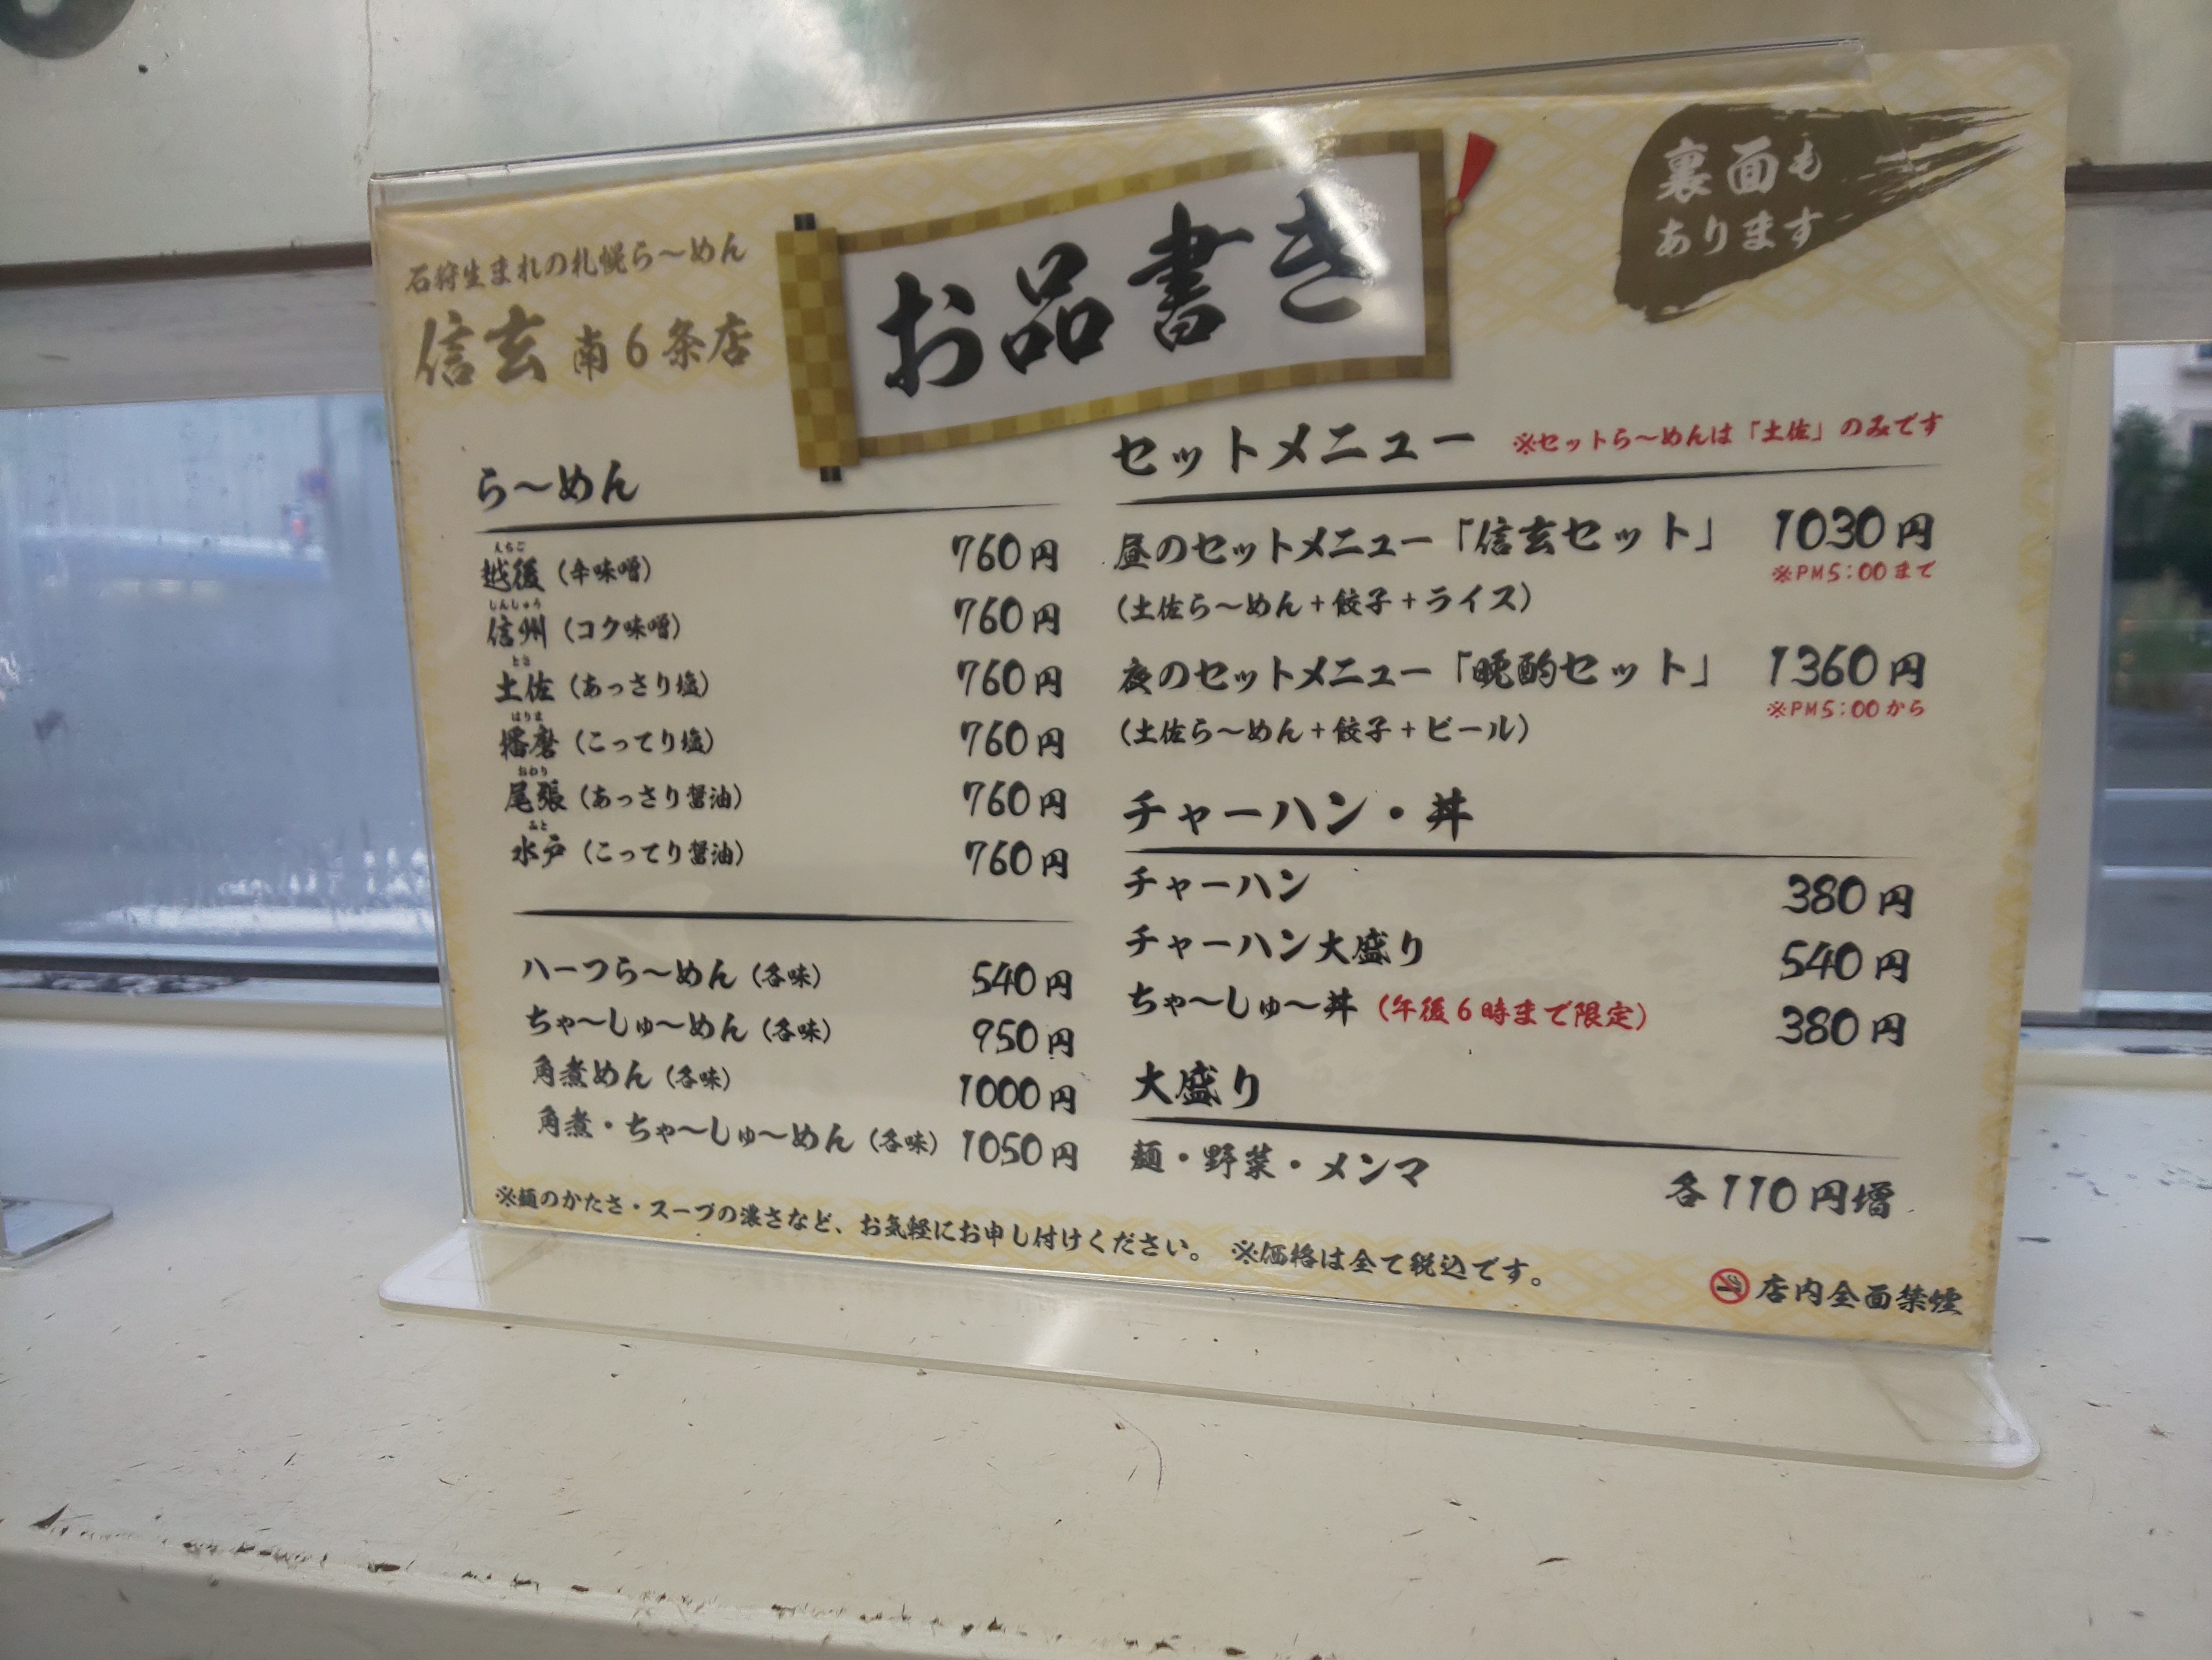 石狩生まれの札幌ら〜めん
信玄 南6条店
お品書き
裏面も
あります
ら〜めん
えちご
越後（辛味噌） 760円
しんしゅう
信州（コク味噌） 760円
とさ
土佐（あっさり塩） 760円
はりま
播磨（こってり塩） 760円
おわり
尾張（あっさり醤油） 760円
みと
水戸（こってり醤油） 760円
ハーフら〜めん（各味） 540円
ちゃ〜しゅ〜めん（各味） 950円
角煮めん（各味） 1000円
角煮・ちゃ〜しゅ〜めん（各味） 1050円
セットメニュー ※セットら〜めんは「土佐」のみです
昼のセットメニュー「信玄セット」 1030円
※PM5:00まで
（土佐ら〜めん+餃子+ライス）
夜のセットメニュー「晩酌セット」 1360円
※PM5:00から
（土佐ら〜めん+餃子+ビール）
チャーハン・丼
チャーハン 380円
チャーハン大盛り 540円
ちゃ〜しゅ〜丼（午後6時まで限定） 380円
大盛り
麺・野菜・メンマ 各110円増
※麺のかたさ・スープの濃さなど、お気軽にお申し付けください。 ※価格は全て税込です。
店内全面禁煙